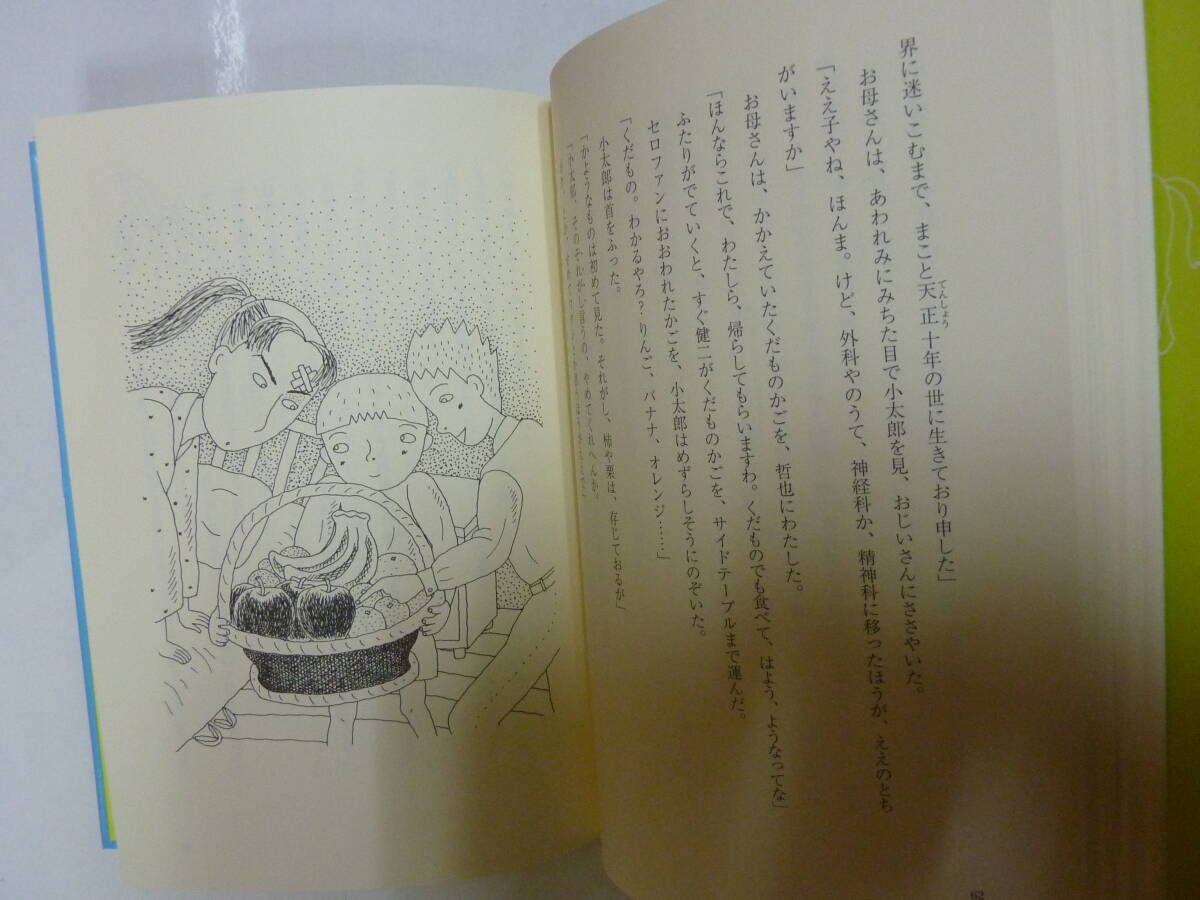 界に迷いこむまで、まこと天正十年の世に生きており申した」
てんしょう
お母さんは、あわれみにみちた目で小太郎を見、おじいさんにささやいた。
「ええ子やね、ほんま。けど、外科やのうて、神経科か、精神科に移ったほうが、ええのとち
がいますか」
お母さんは、かかえていたくだものかごを、哲也にわたした。
「ほんならこれで、わたしら、帰らしてもらいますわ。くだものでも食べて、はよう、ようなってな」
ふたりがでていくと、すぐ健二がくだものかごを、サイドテーブルまで運んだ。
セロファンにおおわれたかごを、小太郎はめずらしそうにのぞいた。
「くだもの。わかるやろ？りんご、バナナ、オレンジ……」
小太郎は首をふった。
「かようなものは初めて見た。それがし、柿や栗は、存じておるが」
「小太郎、そのそれがし言うの、やめてくれへんか。
62